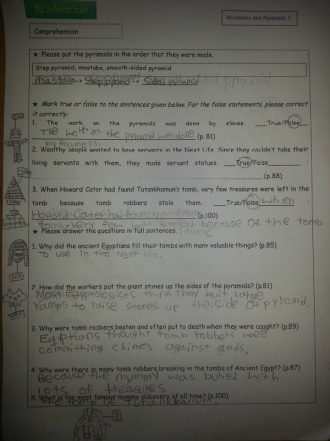 Mummies and Pyramids 1
Comprehension
★ Please put the pyramids in the order that they were made.
Step pyramid, mastaba, smooth-sided pyramid
mastaba → Step pyramid → Sided pyramid
★ Mark true or false to the sentences given below. For the false statements, please correct
it correctly.
1. The work on the pyramids was done by slaves. __True/False
The work on the pyramid was done (p.81)
by farmers.
2. Wealthy people wanted to have servants in the Next Life. Since they couldn't take their
living servants with them, they made servant statues. __True/False
(p.88)
3. When Howard Cater had found Tutankhamun's tomb, very few treasures were left in the
tomb because tomb robbers stole them. __True/False When
Howard Carter (p.100)
tomb, very few because of the tomb
★ Please answer the questions in full sentences.
1. Why did the ancient Egyptians fill their tombs with many valuable things? (p.85)
To use in the next life.
2. How did the workers put the giant stones up the sides of the pyramids? (p.81)
Most Egyptologists think they built large
ramps to raise stones up the side of pyramid.
3. Why were tomb robbers beaten and often put to death when they were caught? (p.89)
Egyptians thought tomb robbers were
committing crimes against gods.
4. Why were there so many tomb robbers breaking in the tombs of Ancient Egypt? (p.87)
Because the mummy was buried with
lots of treasures.
5. What is the most famous mummy discovery of all time? (p.100)